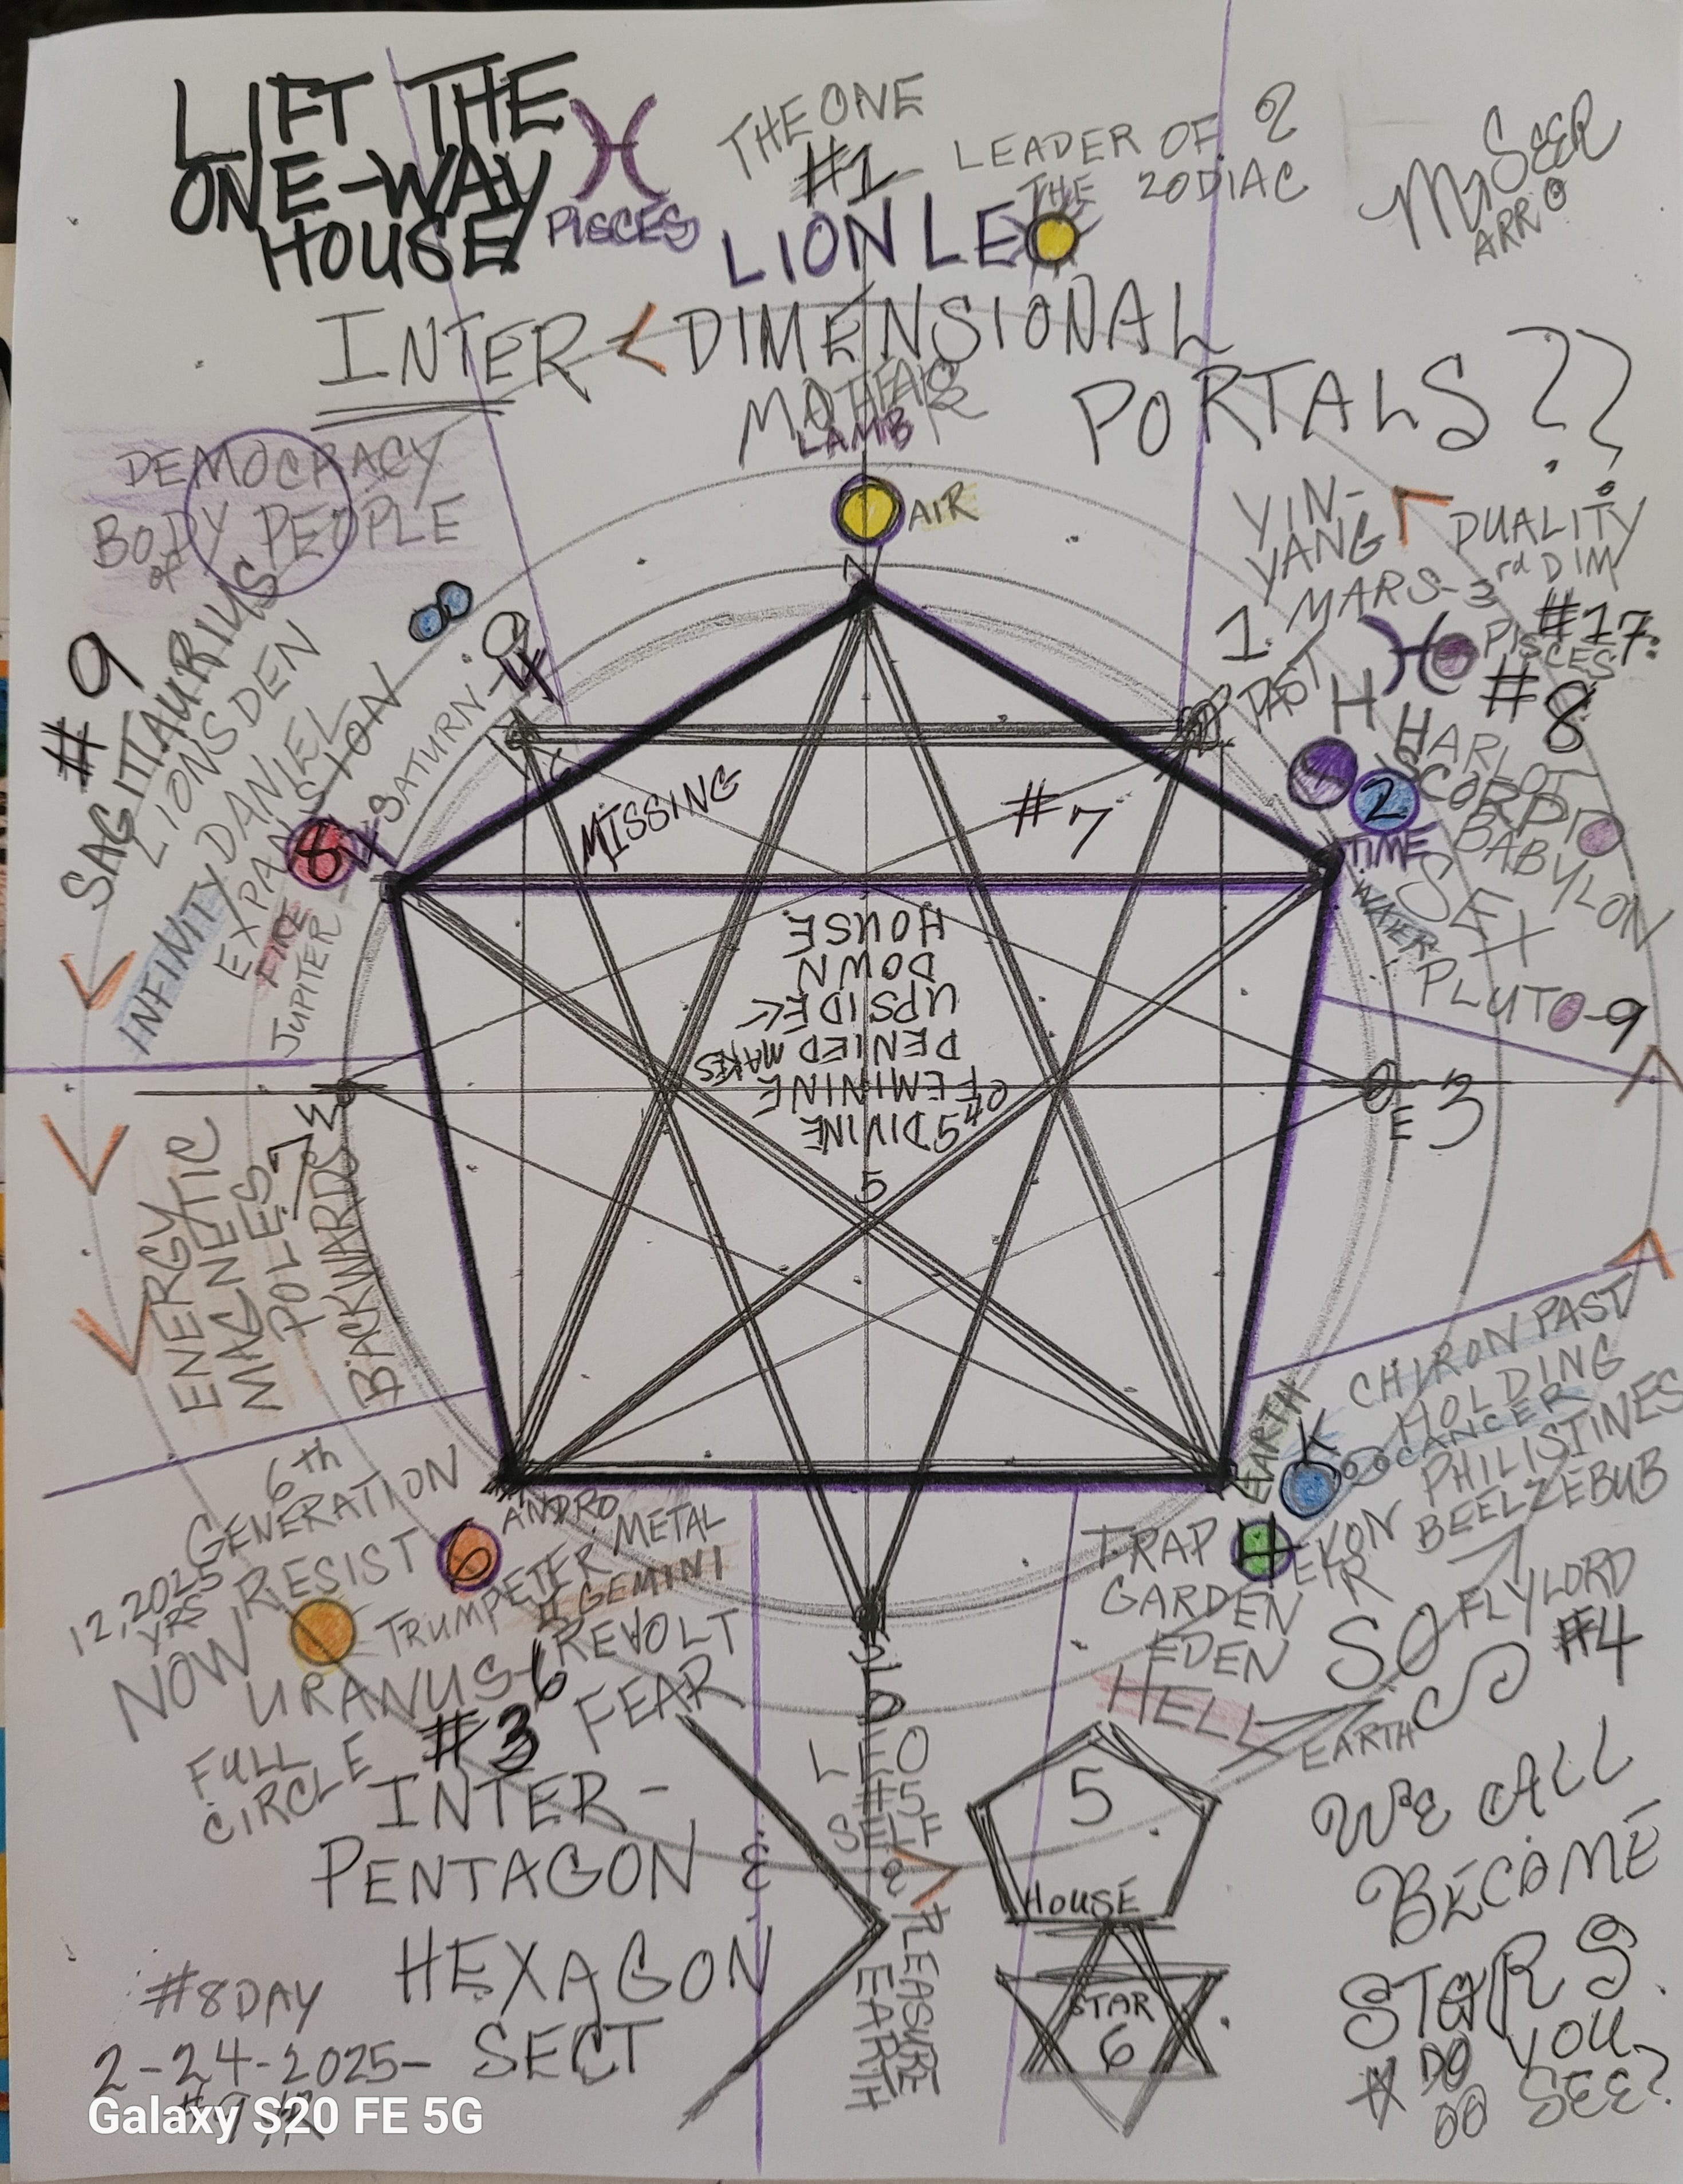 LIFT THE
ONE-WAY
HOUSE
PISCES
THE ONE
#1
LEADER OF
THE ZODIAC
LION LEO
SEER
ARR
INTER < DIMENSIONAL
PORTALS??
LAMB
AIR
N
DEMOCRACY
BODY PEOPLE
of
#9
SAGITTAURIUS
LIONS DEN
DANIEL
INFINITY
EXPANSION
FIRE
JUPITER
8
SATURN-4
YIN-
YANG
DUALITY
1. MARS-3rd DIM
PAST
#17:
PISCES
#8
H
HARLOT
SCORPIO
BABYLON
2
TIME
SEX
WATER
PLUTO-9
MISSING
#7
HOUSE
DOWN
UPSIDE
DENIED MAKES
OF FEMININE
5 DIVINE
5
E 3
W
ENERGETIC
MAGNETIC
POLES
BACKWARDS
6th
GENERATION
RESIST
12,2025
YRS
NOW
6
ANDRO
METAL
TRUMPETER
II GEMINI
URANUS-6
REVOLT
#3
FEAR
FULL
CIRCLE
EARTH
K
CHIRON PAST
HOLDING
CANCER
PHILISTINES
BEELZEBUB
TRAP
GARDEN
EDEN
HELL
SO
FLYLORD
#4
EARTH
S
LEO
#5
SELF
&
PLEASURE
EARTH
INTER-
PENTAGON &
HEXAGON
SECT
5
HOUSE
STAR
6
WE ALL
BECOME
STARS.
DO YOU
SEE?
#8DAY
2-24-2025-
Galaxy S20 FE 5G